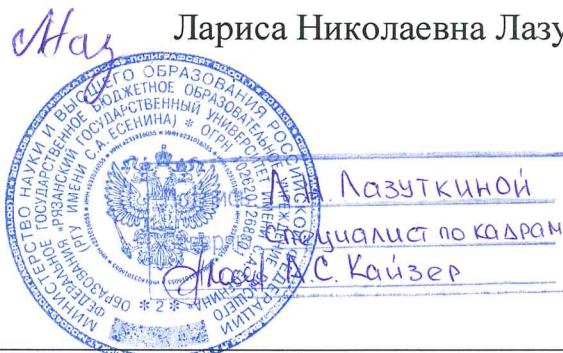 Лариса Николаевна Лазу
МИНИСТЕРСТВО НАУКИ И ВЫСШЕГО ОБРАЗОВАНИЯ РОССИЙСКОЙ ФЕДЕРАЦИИ
ФЕДЕРАЛЬНОЕ ГОСУДАРСТВЕННОЕ БЮДЖЕТНОЕ ОБРАЗОВАТЕЛЬНОЕ
ОБРАЗОВАНИЯ «РЯЗАНСКИЙ ГОСУДАРСТВЕННЫЙ УНИВЕРСИТЕТ ИМЕНИ С.А.
(РГУ ИМЕНИ С.А. ЕСЕНИНА) * ОГРН
* 2 *
Лазуткиной
специалист по кадрам
В.С. Кайзер